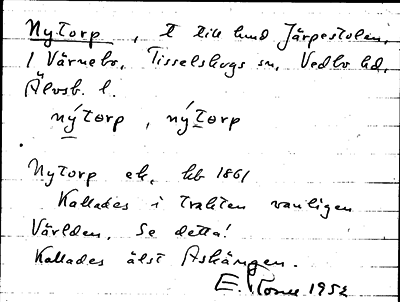 Nytorp, t till hmd Järpestolen,
1 Värnebo, Tisselskogs sn, Vedbo hd,
Älvsb. l.
ny´torp, ny´torp
Nytorp ek, hb 1861
Kallades i trakten vanligen
Världen, Se detta!
Kallades älst Askängen.
E. 1952